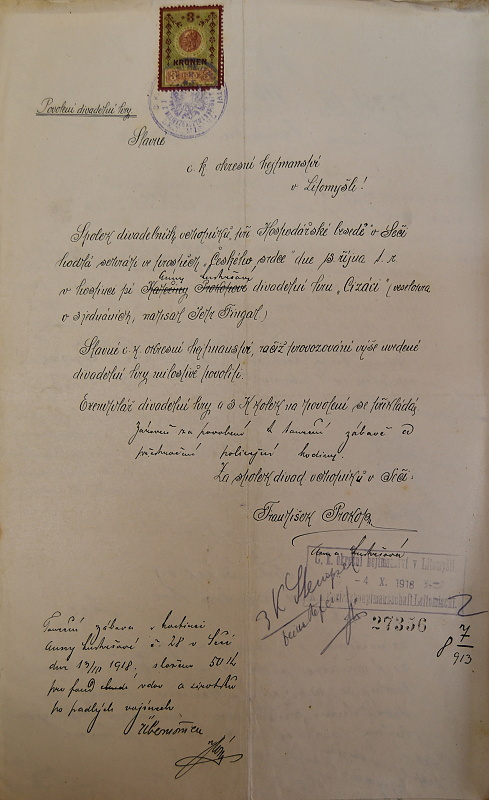 3
KRONEN
Povolení divadelní hry
Slavné
c. k. okresní hejtmanství
v Litomyšli!
Spolek divadelních ochotníků při Hospodářské besedě v Seči
hodlá sehráti ve prospěch „Českého srdce" dne 13 října t. r.
Anny Lukešové
v hostinci pí Kateřiny Prokopové divadelní hru „Crzáči" (veselohra
o 3 jednáních, napsal Petr Fingal.)
Slavné c. k. okresní hejtmanství, račiž provozování výše uvedené
divadelní hry milostivě povoliti.
Exemplář divadelní hry a 3 K kolek na povolení se přikládá.
Zároveň za povolení k taneční zábavě a
překročení policejní hodiny.
Za spolek divad. ochotníků v Seči:
František Prokop
Anna Lukešová
C. k. okresní hejtmanství v Litomyšli
4 X. 1918
Leitomischl
27356
3 K
2
8 7
913
Taneční zábava v hostinci
Anny Lukešové č. 28 v Seči
dne 13/10 1918. složeno 50 K
pro fond vdov a sirotků
po padlých vojínech